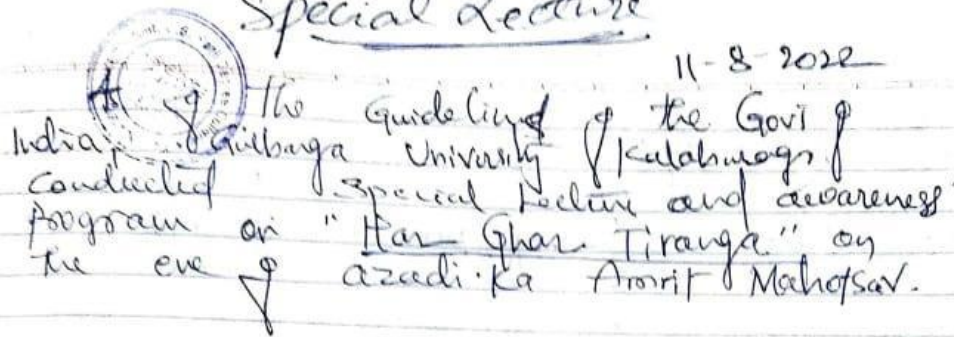 Special Lecture
11-8-2022
As of the Guideline of the Govt of
India, Gulbarga University Kalaburagi
conducted Special Lecture and awareness
program on "Har Ghar Tiranga" on
the eve of azadi ka Amrit Mahotsav.